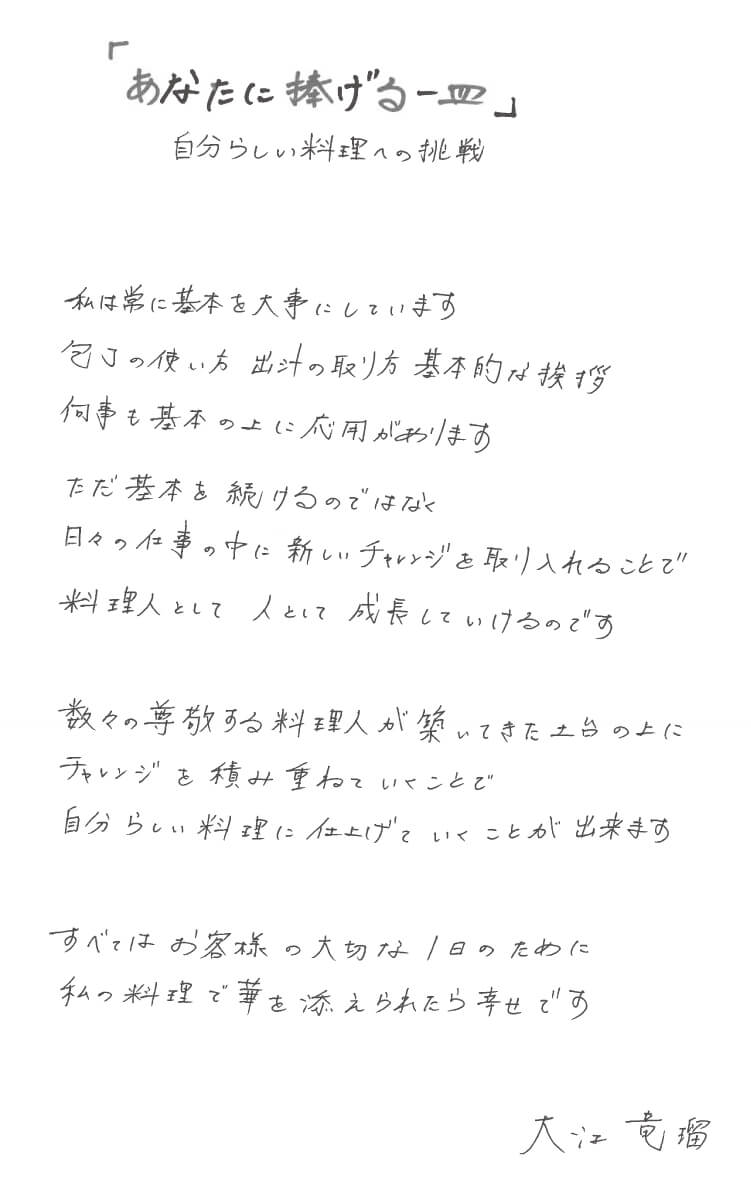 「あなたに捧げる一皿」
自分らしい料理への挑戦
私は常に基本を大事にしています
包丁の使い方 出汁の取り方 基本的な挨拶
何事も基本の上に応用があります
ただ基本を続けるのではなく
日々の仕事の中に新しいチャレンジを取り入れることで
料理人として 人として 成長していけるのです
数々の尊敬する料理人が築いてきた土台の上に
チャレンジを積み重ねていくことで
自分らしい料理に仕上げていくことが出来ます
すべてはお客様の大切な1日のために
私の料理で華を添えられたら幸せです
大江 竜瑠